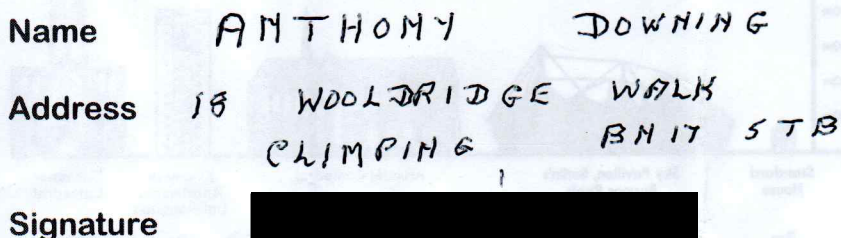 Name ANTHONY DOWNING
Address 18 WOOLDRIDGE WALK
CLIMPING BN17 5TB
Signature